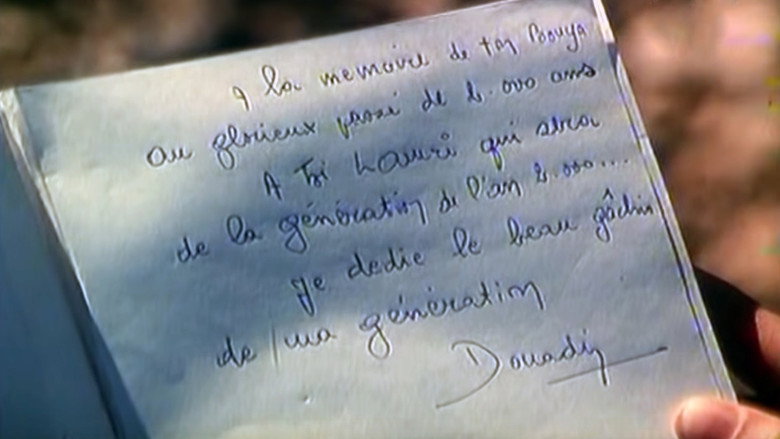 A la memoire de ton Bouya
au glorieux passé de 2.000 ans
A toi Louri qui sera
de la génération de l'an 2.000...
je dedie le beau gâchis
de ma génération
Douadi